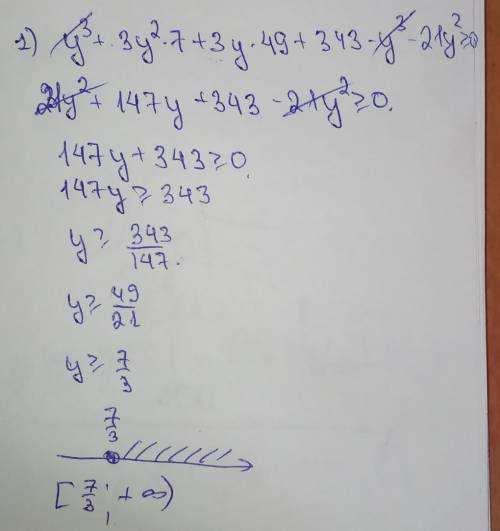 1) y³ + 3y²·7 + 3y·49 + 343 - y³ - 21y² ≥ 0
21y² + 147y + 343 - 21y² ≥ 0.
147y + 343 ≥ 0.
147y ≥ 343
y ≥ 343/147.
y ≥ 49/21
y ≥ 7/3
7/3
[7/3; +∞)